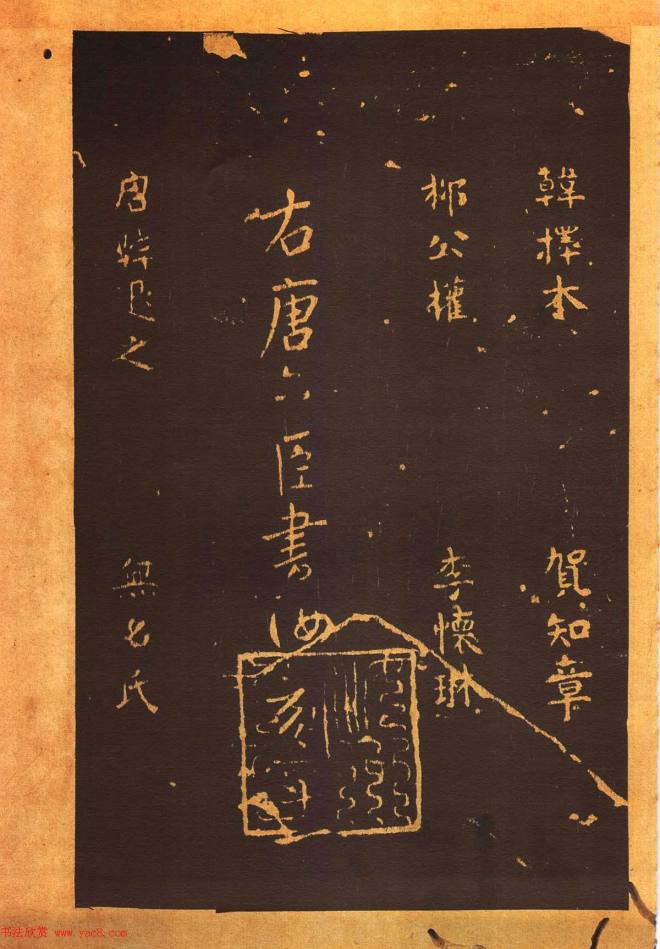 韓擇木 賀知章
柳公權 李懷琳
右唐六臣書 汝
唐韓退之 無名氏
书法欣赏 www.yac8.com